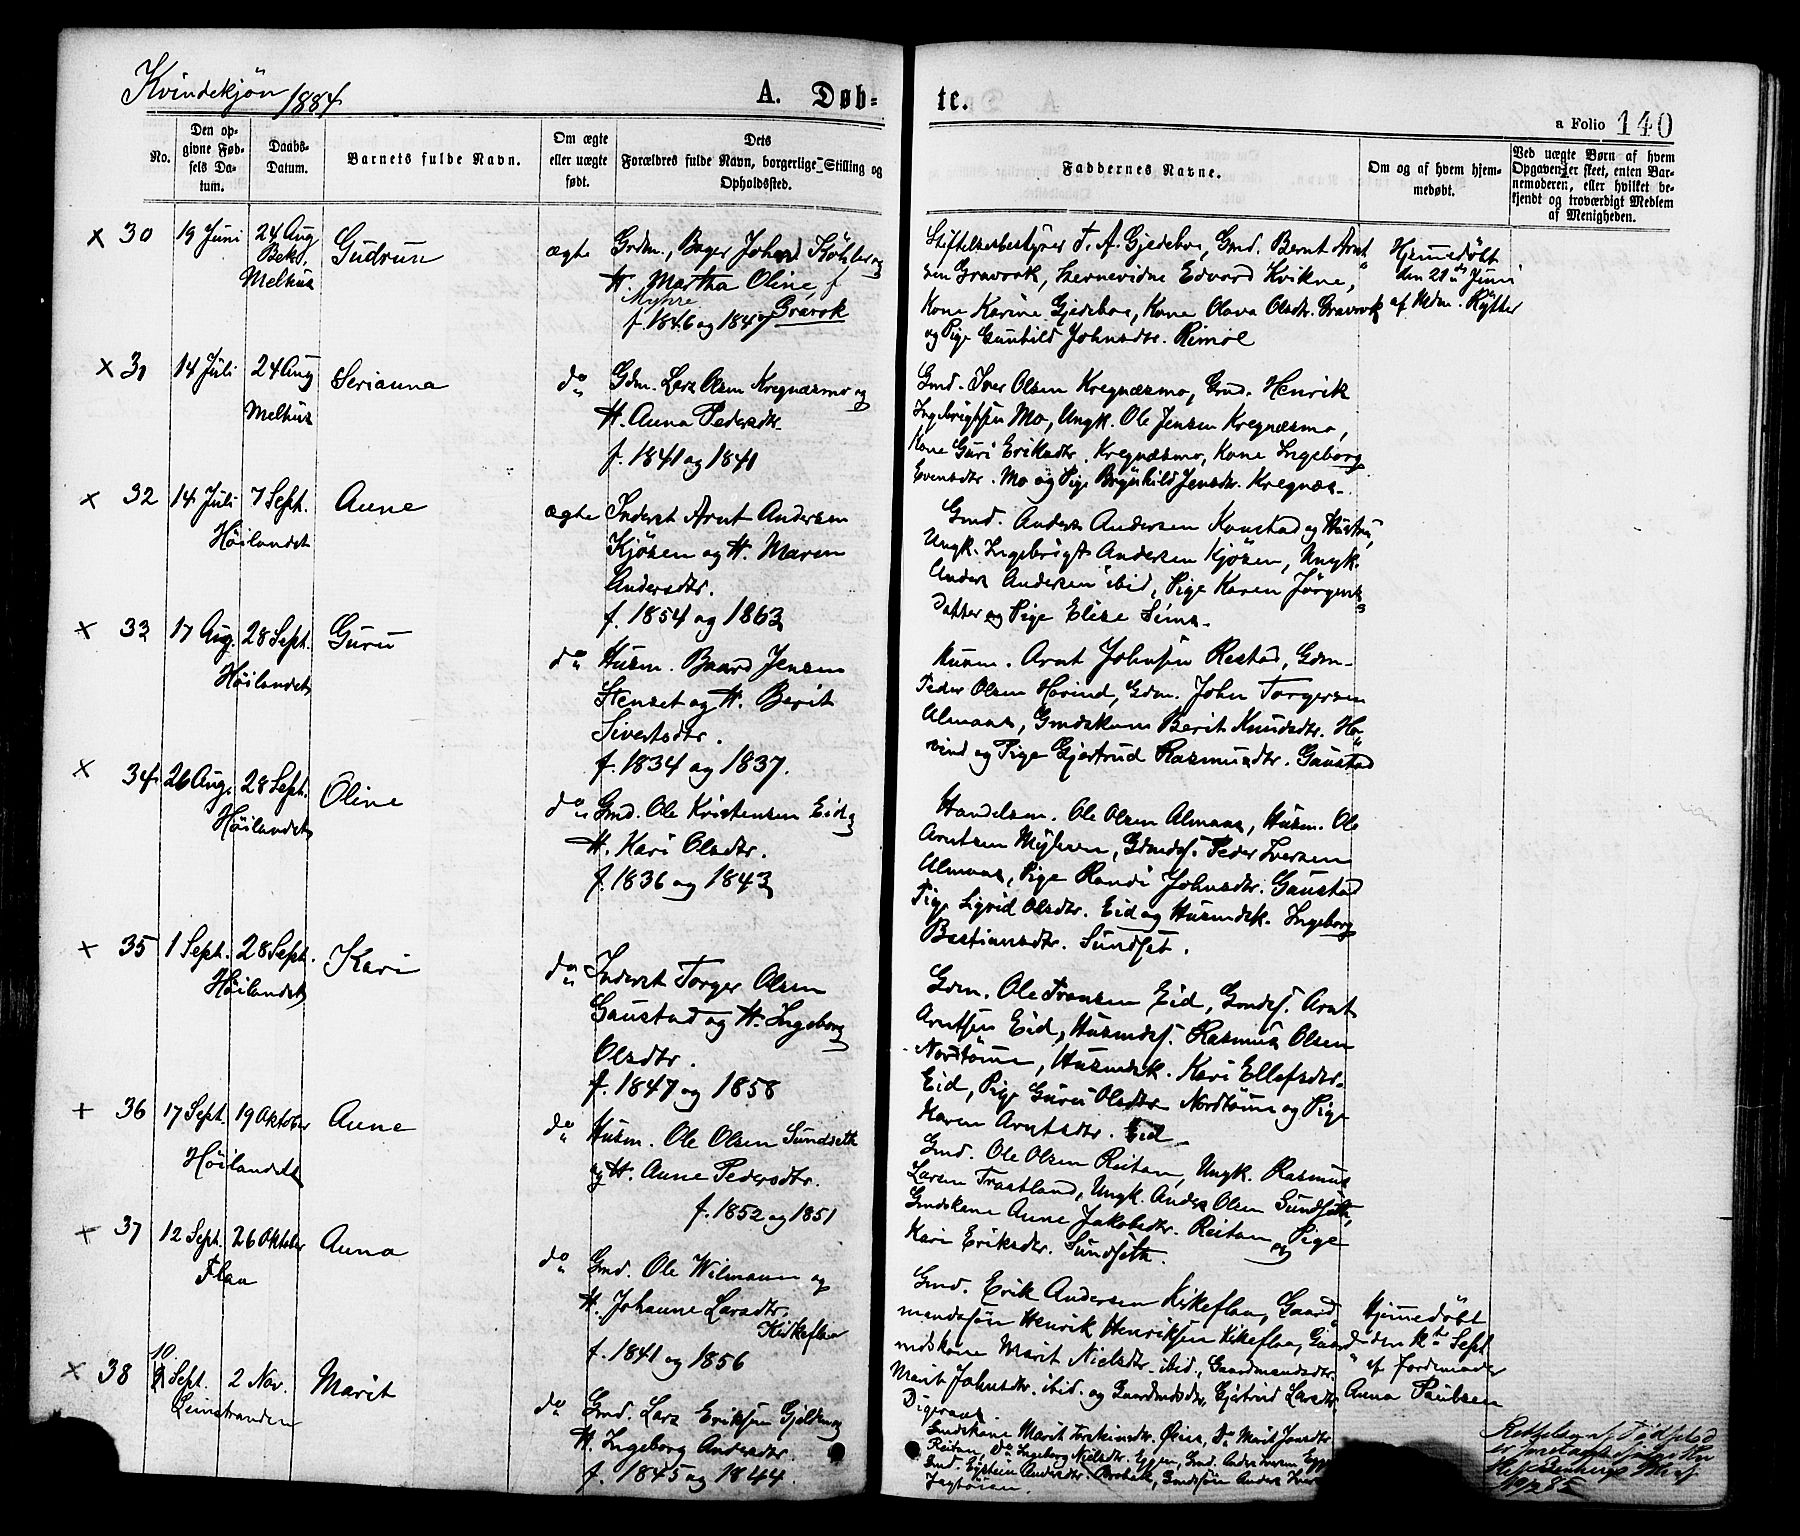 Kvindekjøn 1884
A. Døb-
te.
a Folio 140
No.
Den op-
givne Fød-
sels Da-
tum.
Daabs-
Datum.
Barnets fulde Navn.
Om ægte
eller uægte
født.
Dets
Forældres fulde Navn, borgerlige Stilling og
Opholdssted.
Faddernes Navne.
Om og af hvem hjem-
medøbt.
Ved uægte Børn af hvem
Opgaven er skeet, enten Bar-
nemoderen, eller hvilket be-
kjendt og troværdigt Medlem
af Menigheden.
x 30 19 Juni 24 Aug Bek. Melhus
Gudrun
ægte
Grdm., Bager Johan
H. Martha Oline, f
Myhre
f. 1846 og 1847 Gravrok
Stiftelsesbestyrer T. A. Gjedeboe, Gmd. Bernt Arnt
sen Gravrok, Edvard Kvikne,
Kone Karine Gjedeboe, Kone Olava Olsdtr. Gravrok
og Pige Gunhild Johnsdtr. Rimol
Hjemmedøbt
den 21de Juni
af Mdm. Rytter
x 31 14 Juli 24 Aug Melhus
Serianna
do
Gdm. Lars Olsen Kregnæsmo og
H. Anna Pedersdtr.
f. 1841 og 1841
Gmd. Iver Olsen Kregnæsmo, Gmd. Henrik
Ingebrigtsen Mo, Ungk. Ole Jensen Kregnæsmo,
Kone Guri Eriksdtr. Kregnæsmo, Kone Ingeborg
Evensdtr. Mo og Pige Brynhild Jensdtr. Kregnæs.
x 32 14 Juli 7 Sept. Høilandet
Anne
ægte
Inderst Arnt Andersen
Kjøsen og H. Maren
Andersdtr.
f. 1854 og 1863
Gmd. Anders Andersen Konstad og Hustru,
Ungk. Ingebrigt Andersen Kjøsen, Ungk.
Anders Andersen ibid, Pige Karen Jørgens
Datter og Pige Elise Sims.
x 33 17 Aug. 28 Sept. Høilandet
Guru
do
Husm. Baard Jensen
Stenset og H. Berit
Sivertsdtr.
f. 1834 og 1837.
Husm. Arnt Johnsen Restad, Gdm.
Peder Olsen Hovind, Gdm. John Torgersen
Almaas, Gmdskone Berit Knudsdtr. Ho
vind og Pige Gjertrud Rasmusdtr. Gaustad
x 34 26 Aug. 28 Sept. Høilandet
Oline
do
Gmd. Ole Kristensen Eid og
H. Kari Olsdtr.
f. 1836 og 1843
Handelsm. Ole Olsen Almaas, Husm. Ole
Arntsen Myhren, Gdmds. Peder Iversen
Almaas, Pige Randi Johnsdtr. Gaustad
Pige Sigrid Olsdtr. Eid og Husmdsk. Ingeborg
Bastiansdtr. Sundset.
+ 35 1 Sept. 28 Sept. Høilandet
Kari
do
Inderst Torger Olsen
Gaustad og H. Ingeborg
Olsdtr.
f. 1847 og 1858
Gdm. Ole Fransen Eid, Gmds. Arnt
Arntsen Eid, Husmds. Rasmus Olsen
Nordtømme, Husmdsk. Kari Ellefsdtr.
Eid, Pige Guru Olsdtr. Nordtømme og Pige
Karen Arntsdtr. Eid
+ 36 17 Sept. 19 Oktober Høilandet
Anne
do
Husm. Ole Olsen Sundseth
og H. Anne Pedersdtr.
f. 1852 og 1851
Gmd. Ole Olsen Reitan, Ungk. Rasmus
Larsen Trastland, Ungk. Anders Olsen Sundseth,
Gmdskone Anne Jakobsdtr. Reitan og Pige
Kari Eriksdtr. Sundseth.
+ 37 12 Sept. 26 Oktober Flaa
Anna
do
Gmd. Ole Wilmann og
H. Johanne Larsdtr.
Kirkeflaa
f. 1841 og 1856
Gmd. Erik Andersen Kirkeflaa, Gaard
mandssøn Henrik Henriksen Kirkeflaa, Gaard
mdskone Marit Nielsdtr. ibid, Gaardmandsdtr.
Marit Johnsdtr. ibid. og Gaardmdsdtr. Gjertrud Larsdtr.
Digeraas.
Hjemmedøbt
den Sept
af Jordemoder
Anna Paulsen
x 38 10 Sept. 2 Nov. Leinstranden
Marit
do
Gmd. Lars Eriksen og
H. Ingeborg Andersdtr.
f. 1845 og 1844.
Gmdskone Marit Dr. Marit Jonsdtr.
Reitan, Do Ingeborg Nielsdtr. Eggen, Gmd. Anders Larsen
Gmd. Eystein Andersdtr. Gmdssøn Anders Iver
Rettelse af Fødested